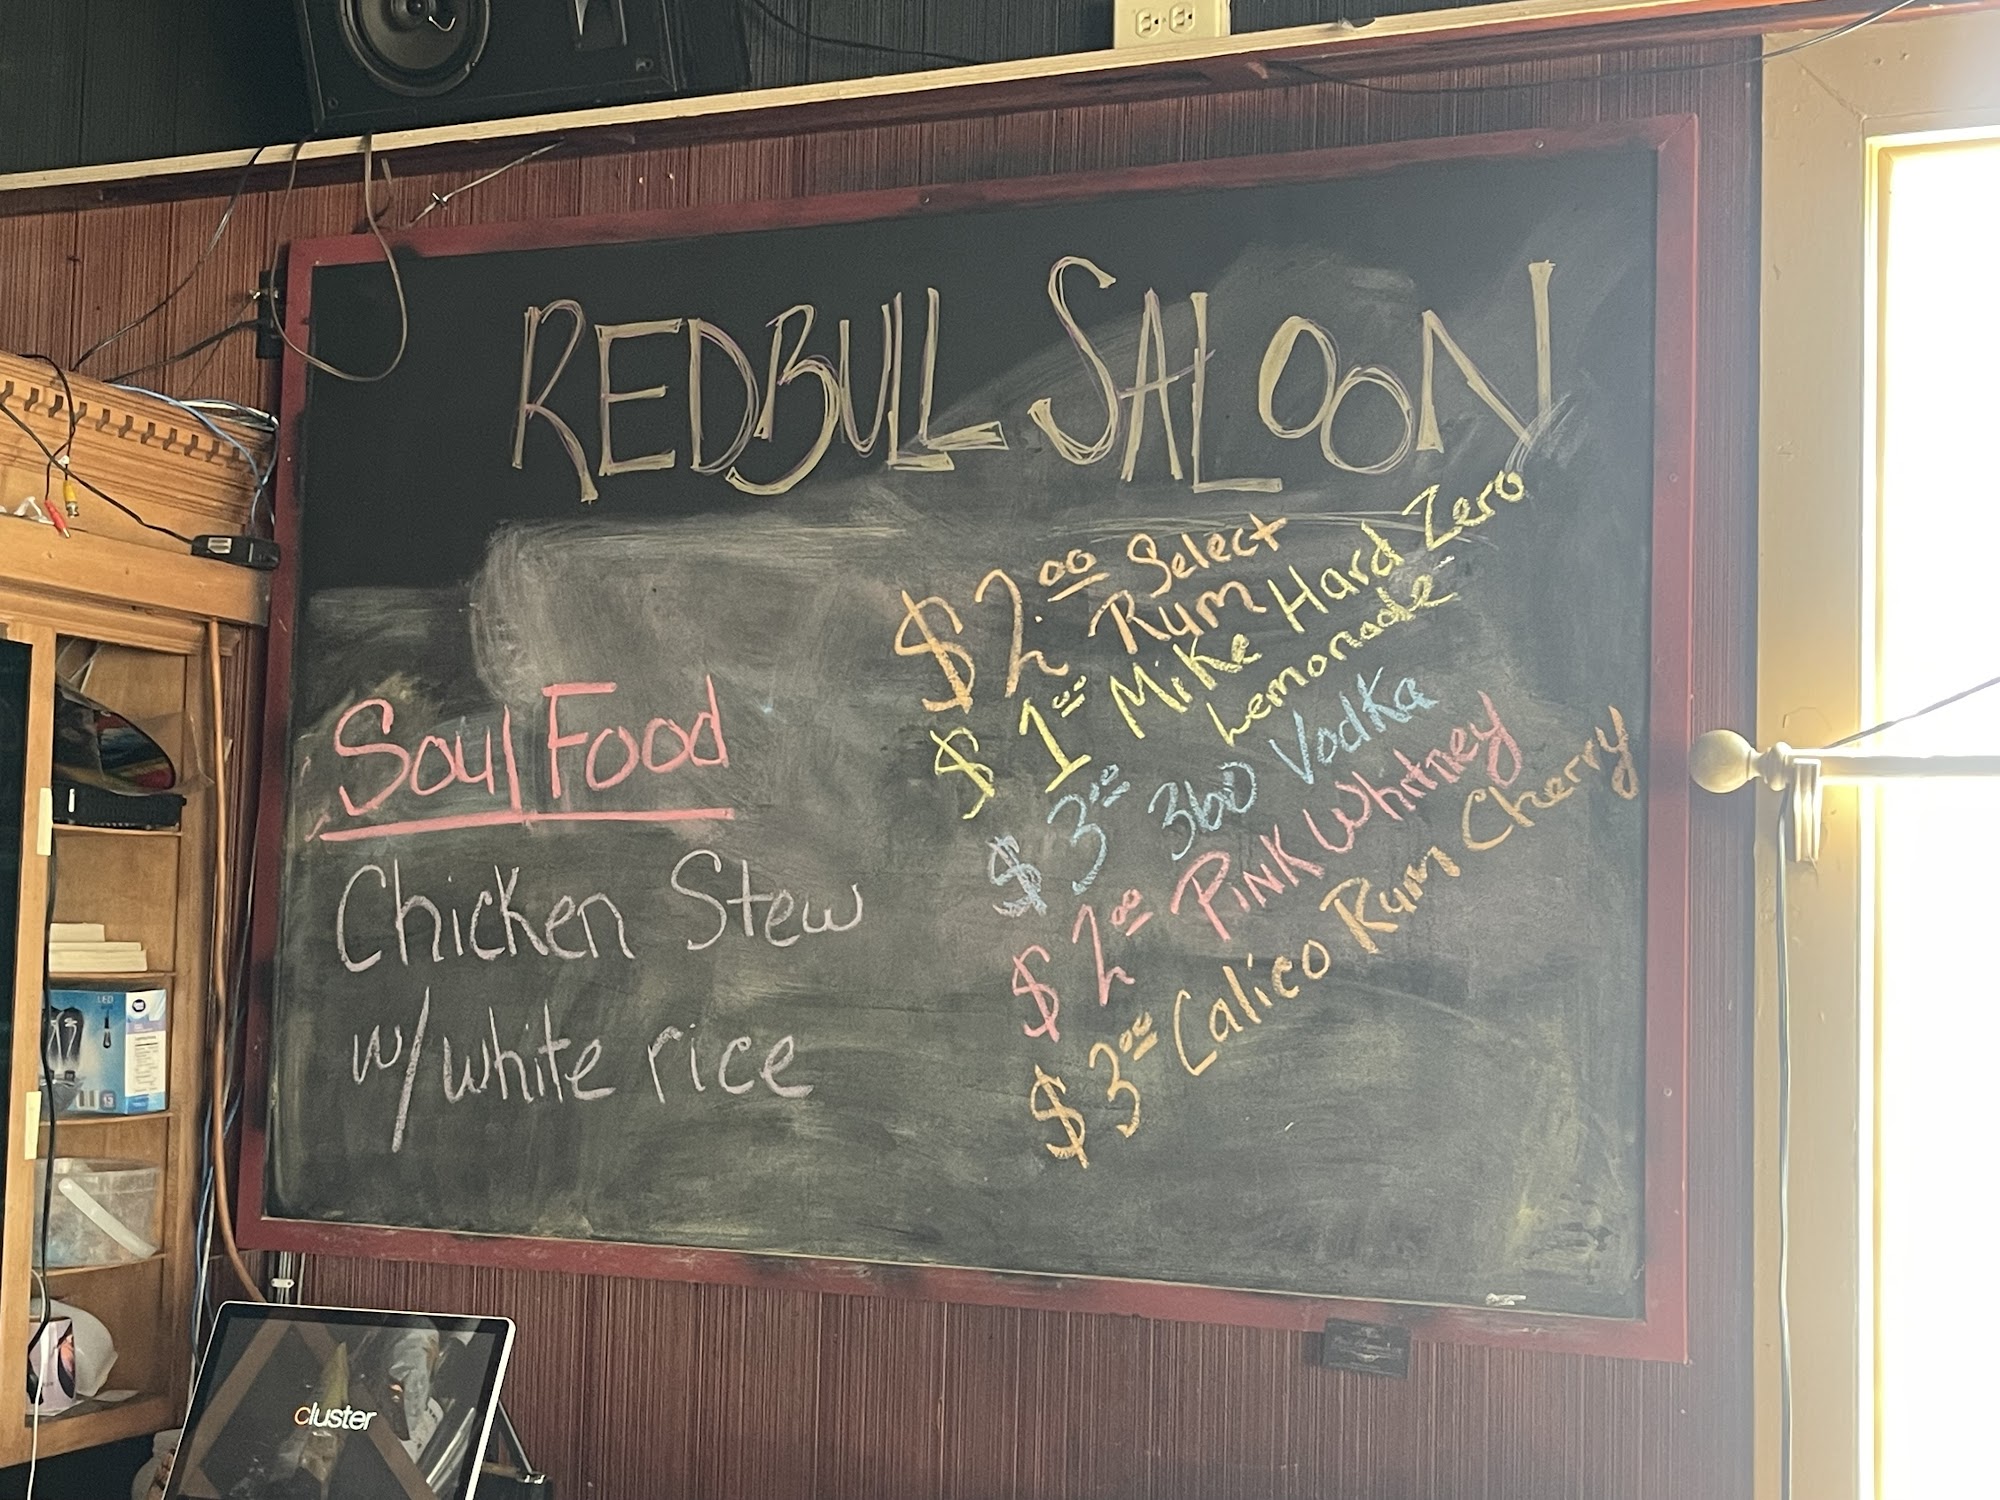 REDBULL SALOON
Soul Food
Chicken Stew
w/ white rice
$2.00 Select
Rum
$1.00 Mike Hard Zero
Lemonade
$3.00 360 Vodka
$2.00 Pink Whitney
$3.00 Calico Rum Cherry
LED
cluster